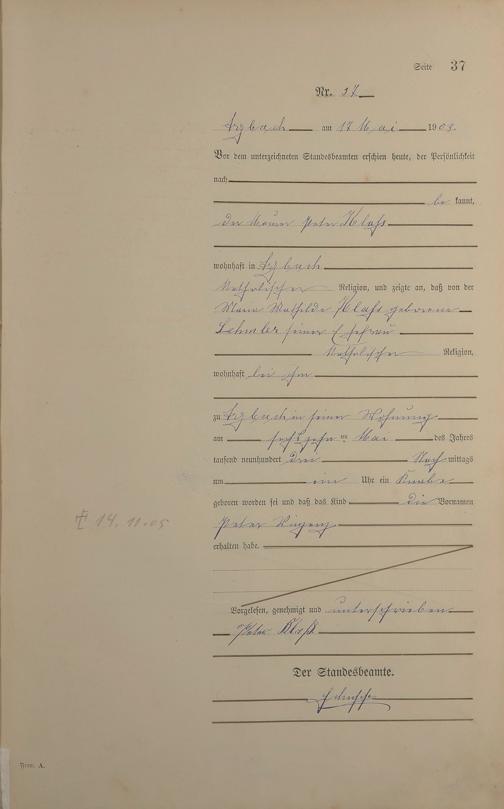 Seite 37
Nr. 37
Arzbach am 17 Mai 1903.
Vor dem unterzeichneten Standesbeamten erschien heute, der Persönlichkeit
nach
be kannt,
der Maurer Peter Klaß
wohnhaft in Arzbach
katholischer Religion, und zeigte an, daß von der
Maria Mathilde Klaß geborene
seiner Ehefrau
katholischer Religion,
wohnhaft bei ihm
zu Arzbach in seiner Wohnung
am sechszehn ten Mai des Jahres
tausend neunhundert drei Nach mittags
um ein Uhr ein Knabe
geboren worden sei und daß das Kind die Vornamen
Peter Vinzenz
✝ 14.11.05
erhalten habe.
Vorgelesen, genehmigt und unterschrieben
Peter Klaß
Der Standesbeamte.
Form. A.